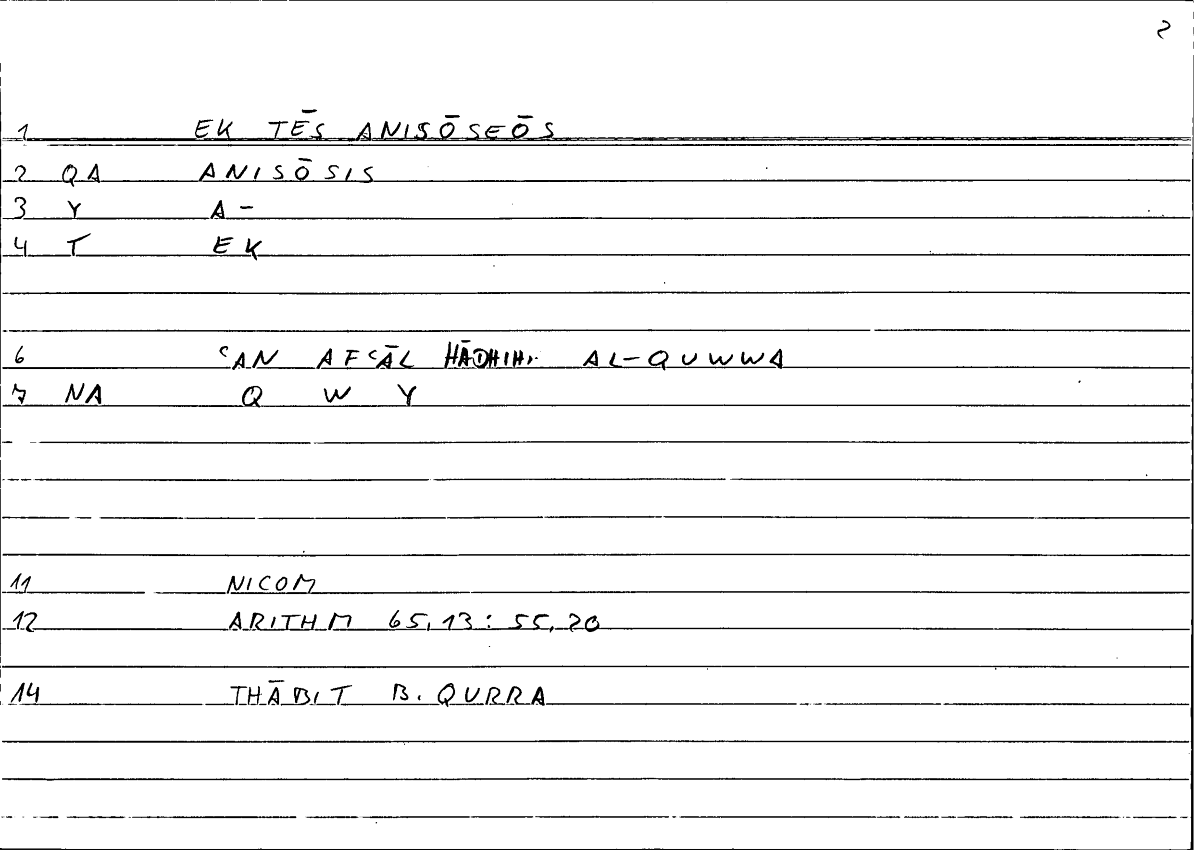 2
1 EK TĒS ANISŌSEŌS
2 QA ANISŌSIS
3 Y A-
4 T EK
6 ʿAN AFʿĀL HĀDHIHI AL-QUWWA
7 NA Q W Y
11 NICOM
12 ARITHM 65,13 : 55,20
14 THĀBIT B. QURRA